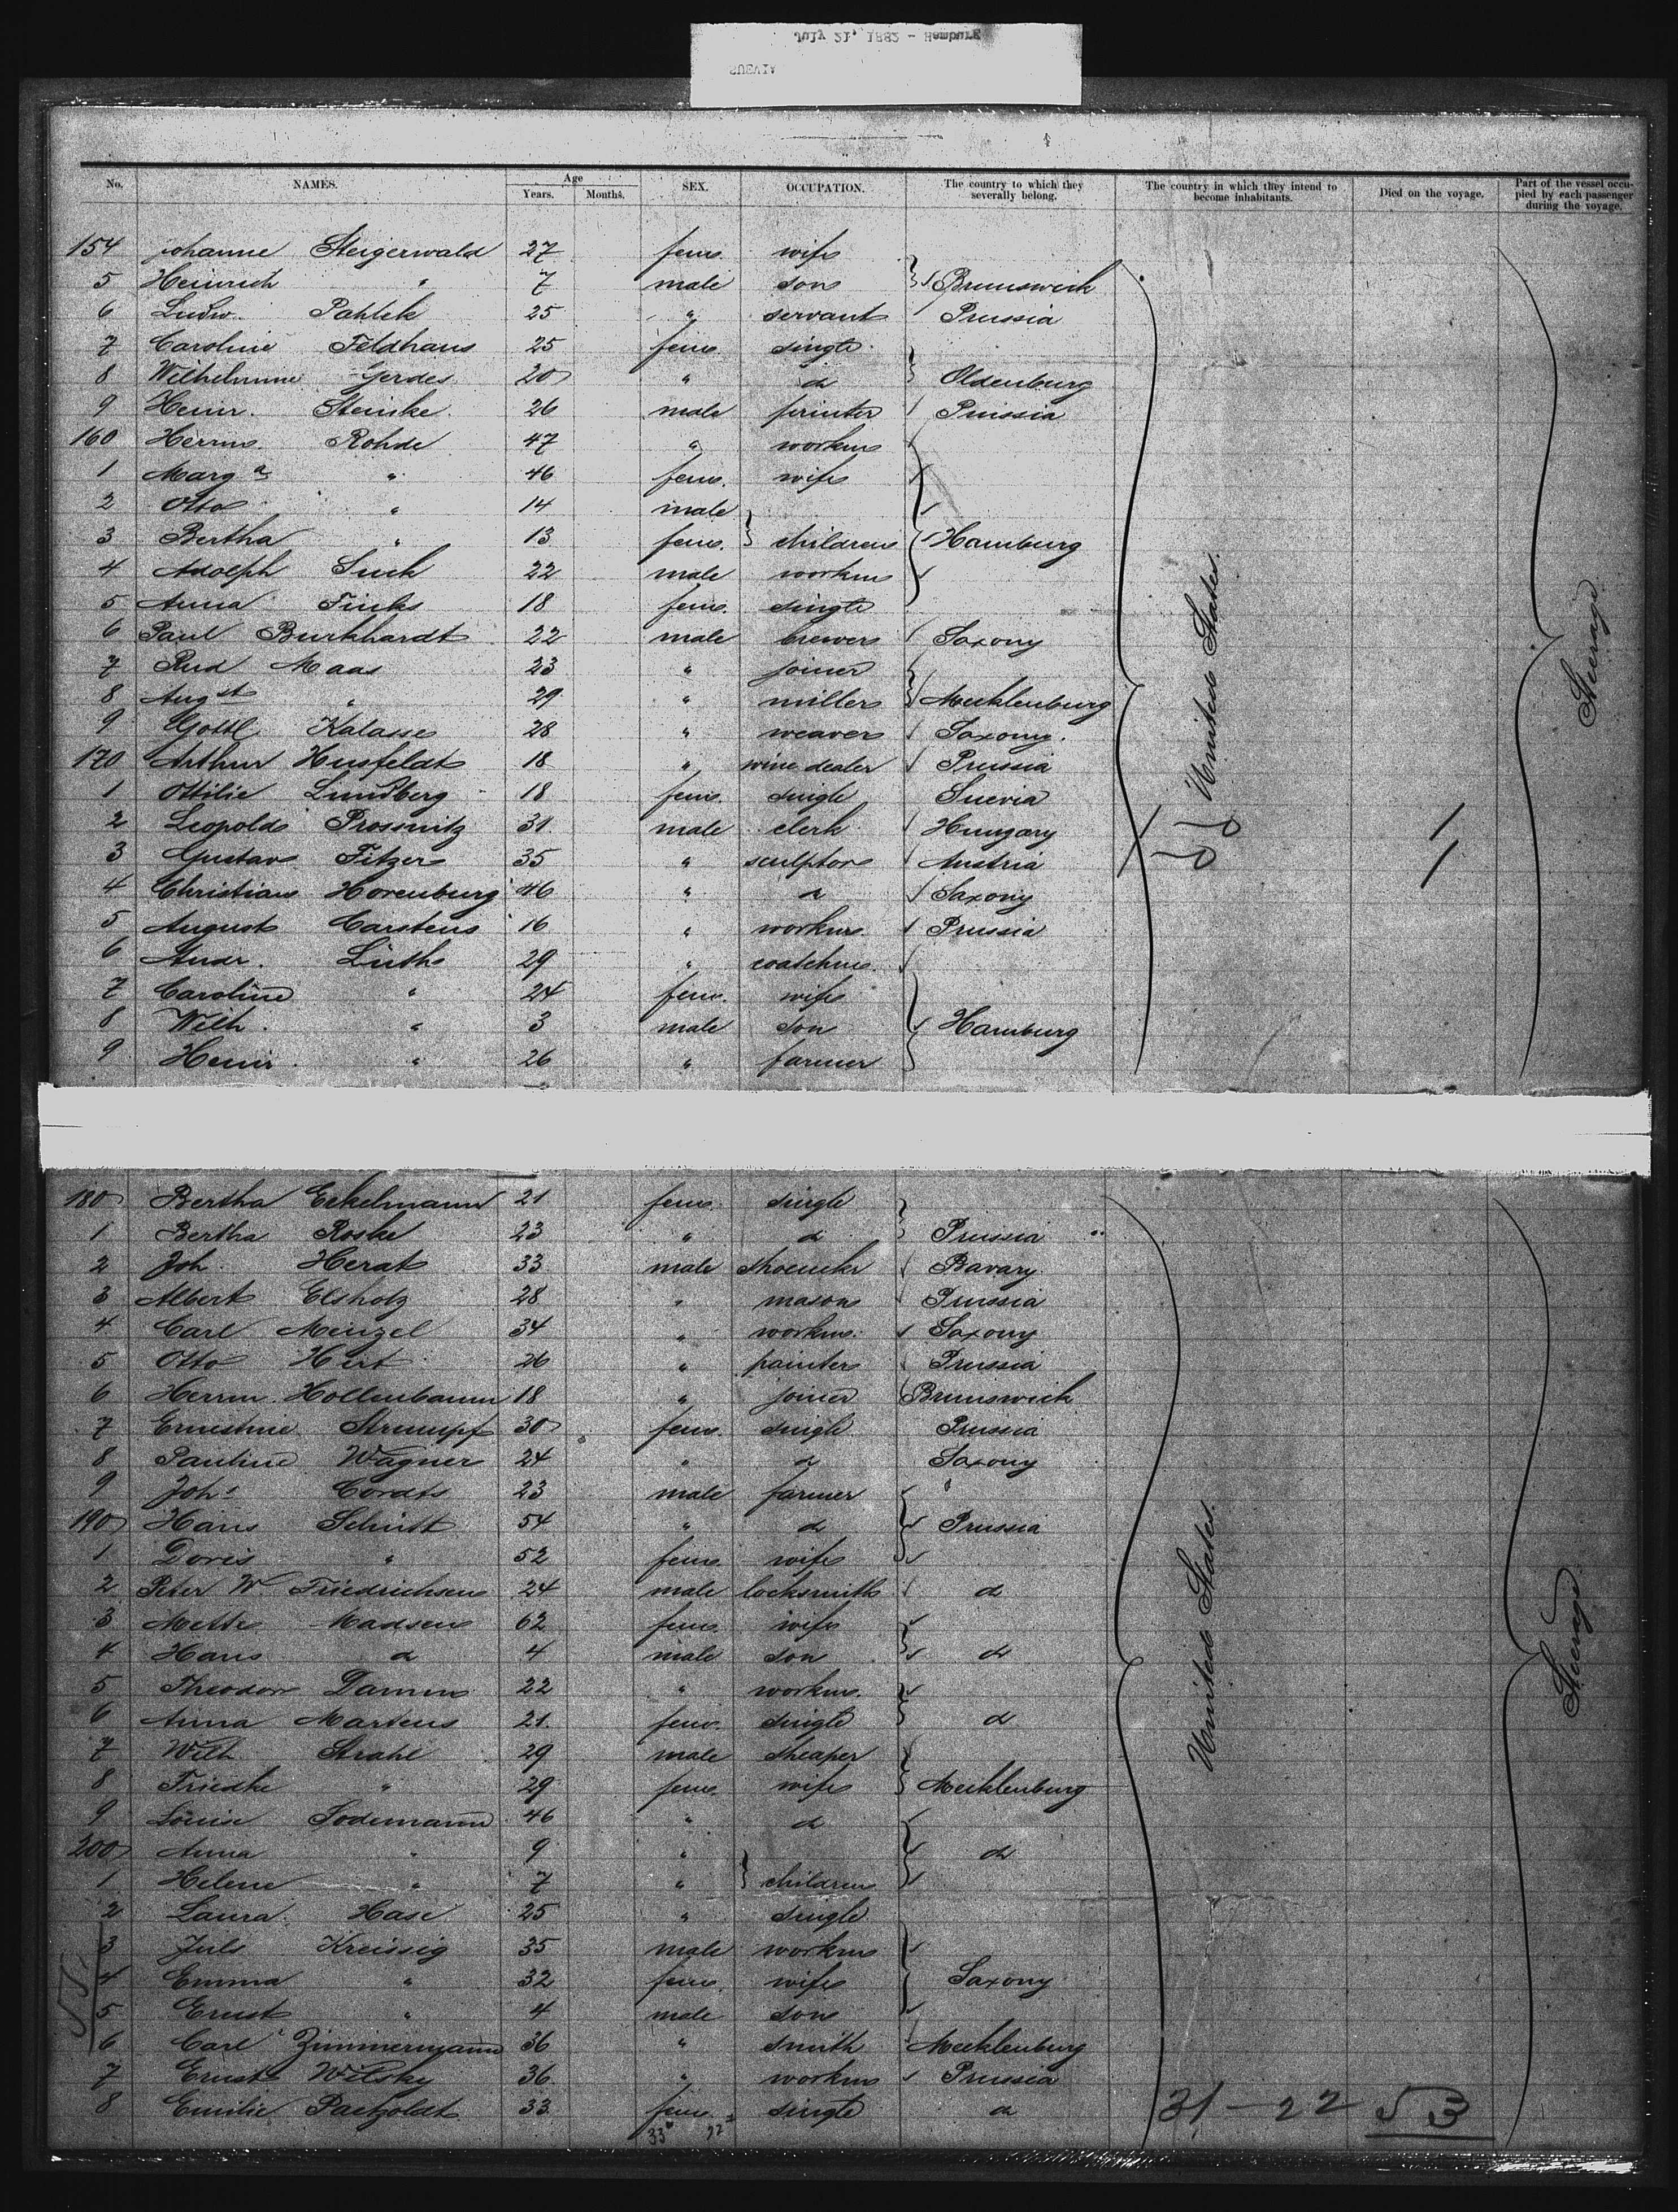 July 21, 1882 - Hamburg
SUEVIA
No. NAMES. Age Years. Months. SEX. OCCUPATION. The country to which they severally belong. The country in which they intend to become inhabitants. Died on the voyage. Part of the vessel occupied by each passenger during the voyage.
154 Johanne Steigerwald 27 fem. wife
5 Heinrich " 7 male son } Brunswich
6 Ludw. Pahlek 25 " servant Prussia
7 Caroline Feldhaus 25 fem. single
8 Wilhelmine Gerdes 20 " d } Oldenburg
9 Heinr. Steinke 26 male printer Prussia
160 Herrm. Rohde 47 " workm
1 Marg a " 46 fem. wife
2 Otto " 14 male
3 Bertha " 13 fem. } children { Hamburg
4 Adolph Suck 22 male workm
5 Anna Finks 18 fem. single
6 Paul Burkhardt 22 male brewer Saxony
7 Rud Maas 23 " joiner
8 Aug st " 29 " miller } Mecklenburg
9 Gottl. Kalasse 28 " weaver Saxony.
170 Arthur Husfeldt 18 " wine dealer Prussia
1 Ottilie Lundberg 18 fem. single Suevia
2 Leopold Prossnitz 31 male clerk Hungary
3 Gustav Fitzer 35 " sculptor Austria
4 Christian Horenburg 46 " d Saxony
5 August Carstens 16 " workm. Prussia
6 Andr. Lüth 29 " coatchm.
7 Caroline " 24 fem. wife
8 Wilh. " 3 male son } Hamburg
9 Heinr. " 26 " farmer
United States.
Steerage
180 Bertha Eckelmann 21 fem. single
1 Bertha Roske 23 " d } Prussia "
2 Joh. Herat 33 male shoemkr Bavary
3 Albert Elsholz 28 " mason Prussia
4 Carl Menzel 34 " workm. Saxony
5 Otto Hirt 26 " painter Prussia
6 Herrm. Hollenbaum 18 " joiner Brunswich
7 Ernestine Strumpf 30 fem. single Prussia
8 Pauline Wagner 24 " d Saxony
9 Joh s Cordts 23 male farmer
190 Hans Schütt 54 " d } Prussia
1 Doris " 52 fem. wife
2 Peter W Friedrichsen 24 male locksmith d
3 Mette Madsen 62 fem. wife
4 Hans d 4 male son } d
5 Theodor Damm 22 " workm.
6 Anna Martens 21. fem. single } d
7 Wilh. Strahl 29 male sheaper
8 Friedke " 29 fem. wife } Mecklenburg
9 Louise Sodemann 46 " d
200 Anna " 9 " } d
1 Helene " 7 " } children
2 Laura Hase 25 " single
3 Juls Kreissig 35 male workm
4 Emma " 32 fem. wife } Saxony
5 Ernst " 4 male son
6 Carl Zimmermann 36 " smith Mecklenburg
7 Ernst Wilsky 36 " workm Prussia
8 Emilie Paetzoldt 33 fem. single d
United States.
Steerage
31 - 22 53
33 22